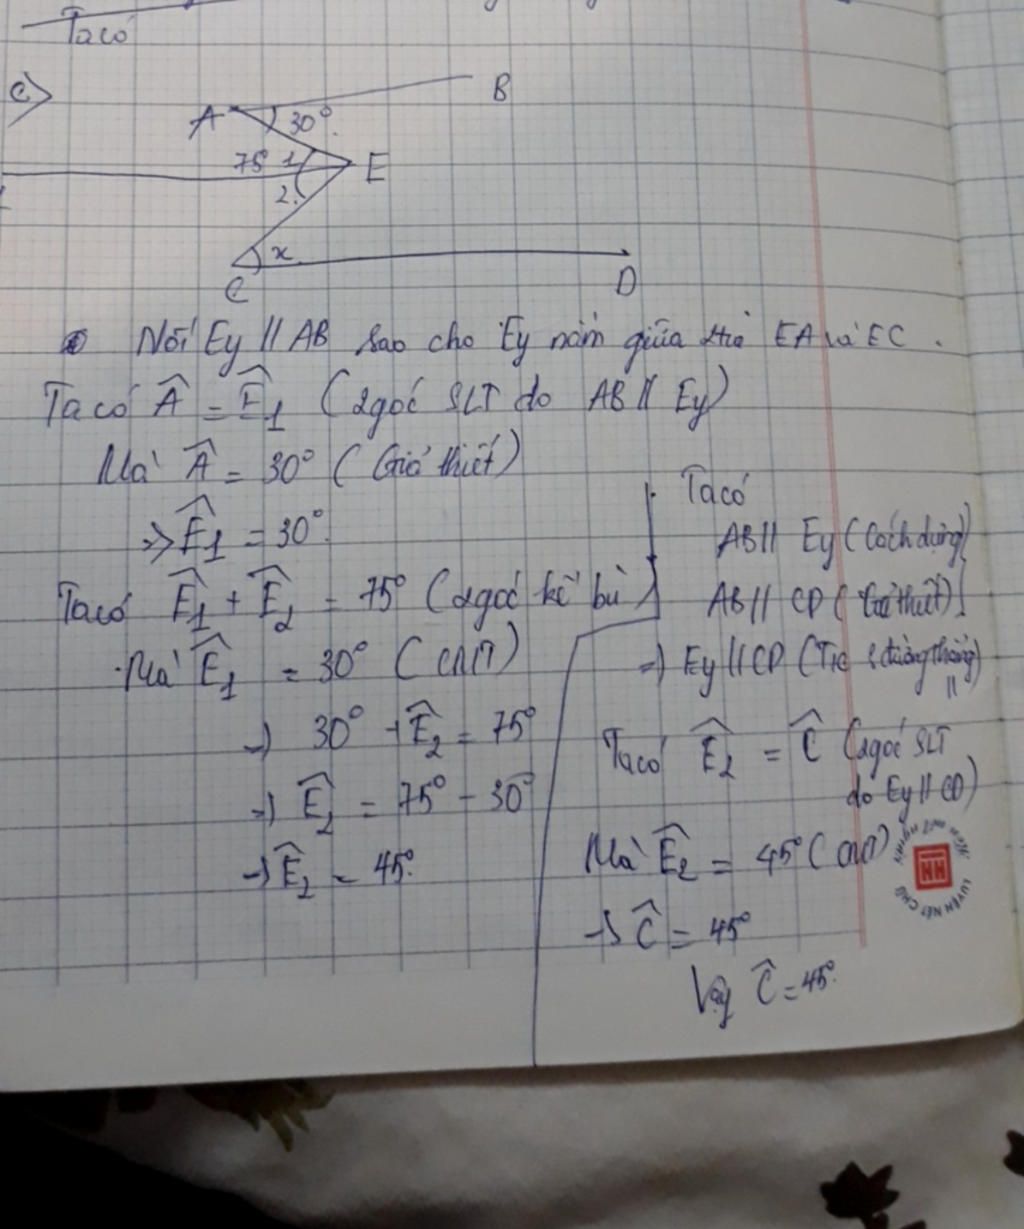 Ta có
c)
A
B
30°
75° 1
E
2
x
C
D
Nối Ey // AB sao cho Ey nằm giữa tia EA và EC.
Ta có Â = Ê1 (2 góc SLT do AB // Ey)
Mà Â = 30° (Giả thiết)
=> Ê1 = 30°.
Ta có Ê1 + Ê2 = 75° (2 góc kề bù)
Mà Ê1 = 30° (CMT)
=> 30° + Ê2 = 75°
=> Ê2 = 75° - 30°
=> Ê2 = 45°.
Ta có
AB // Ey (Cách dựng)
AB // CD (Giả thiết)
=> Ey // CD (T/c 3 đường thẳng //)
Ta có Ê2 = Ĉ (2 góc SLT
do Ey // CD)
Mà Ê2 = 45° (CMT)
=> Ĉ = 45°
Vậy Ĉ = 45°.
HH
LUYỆN NÉT CHỮ